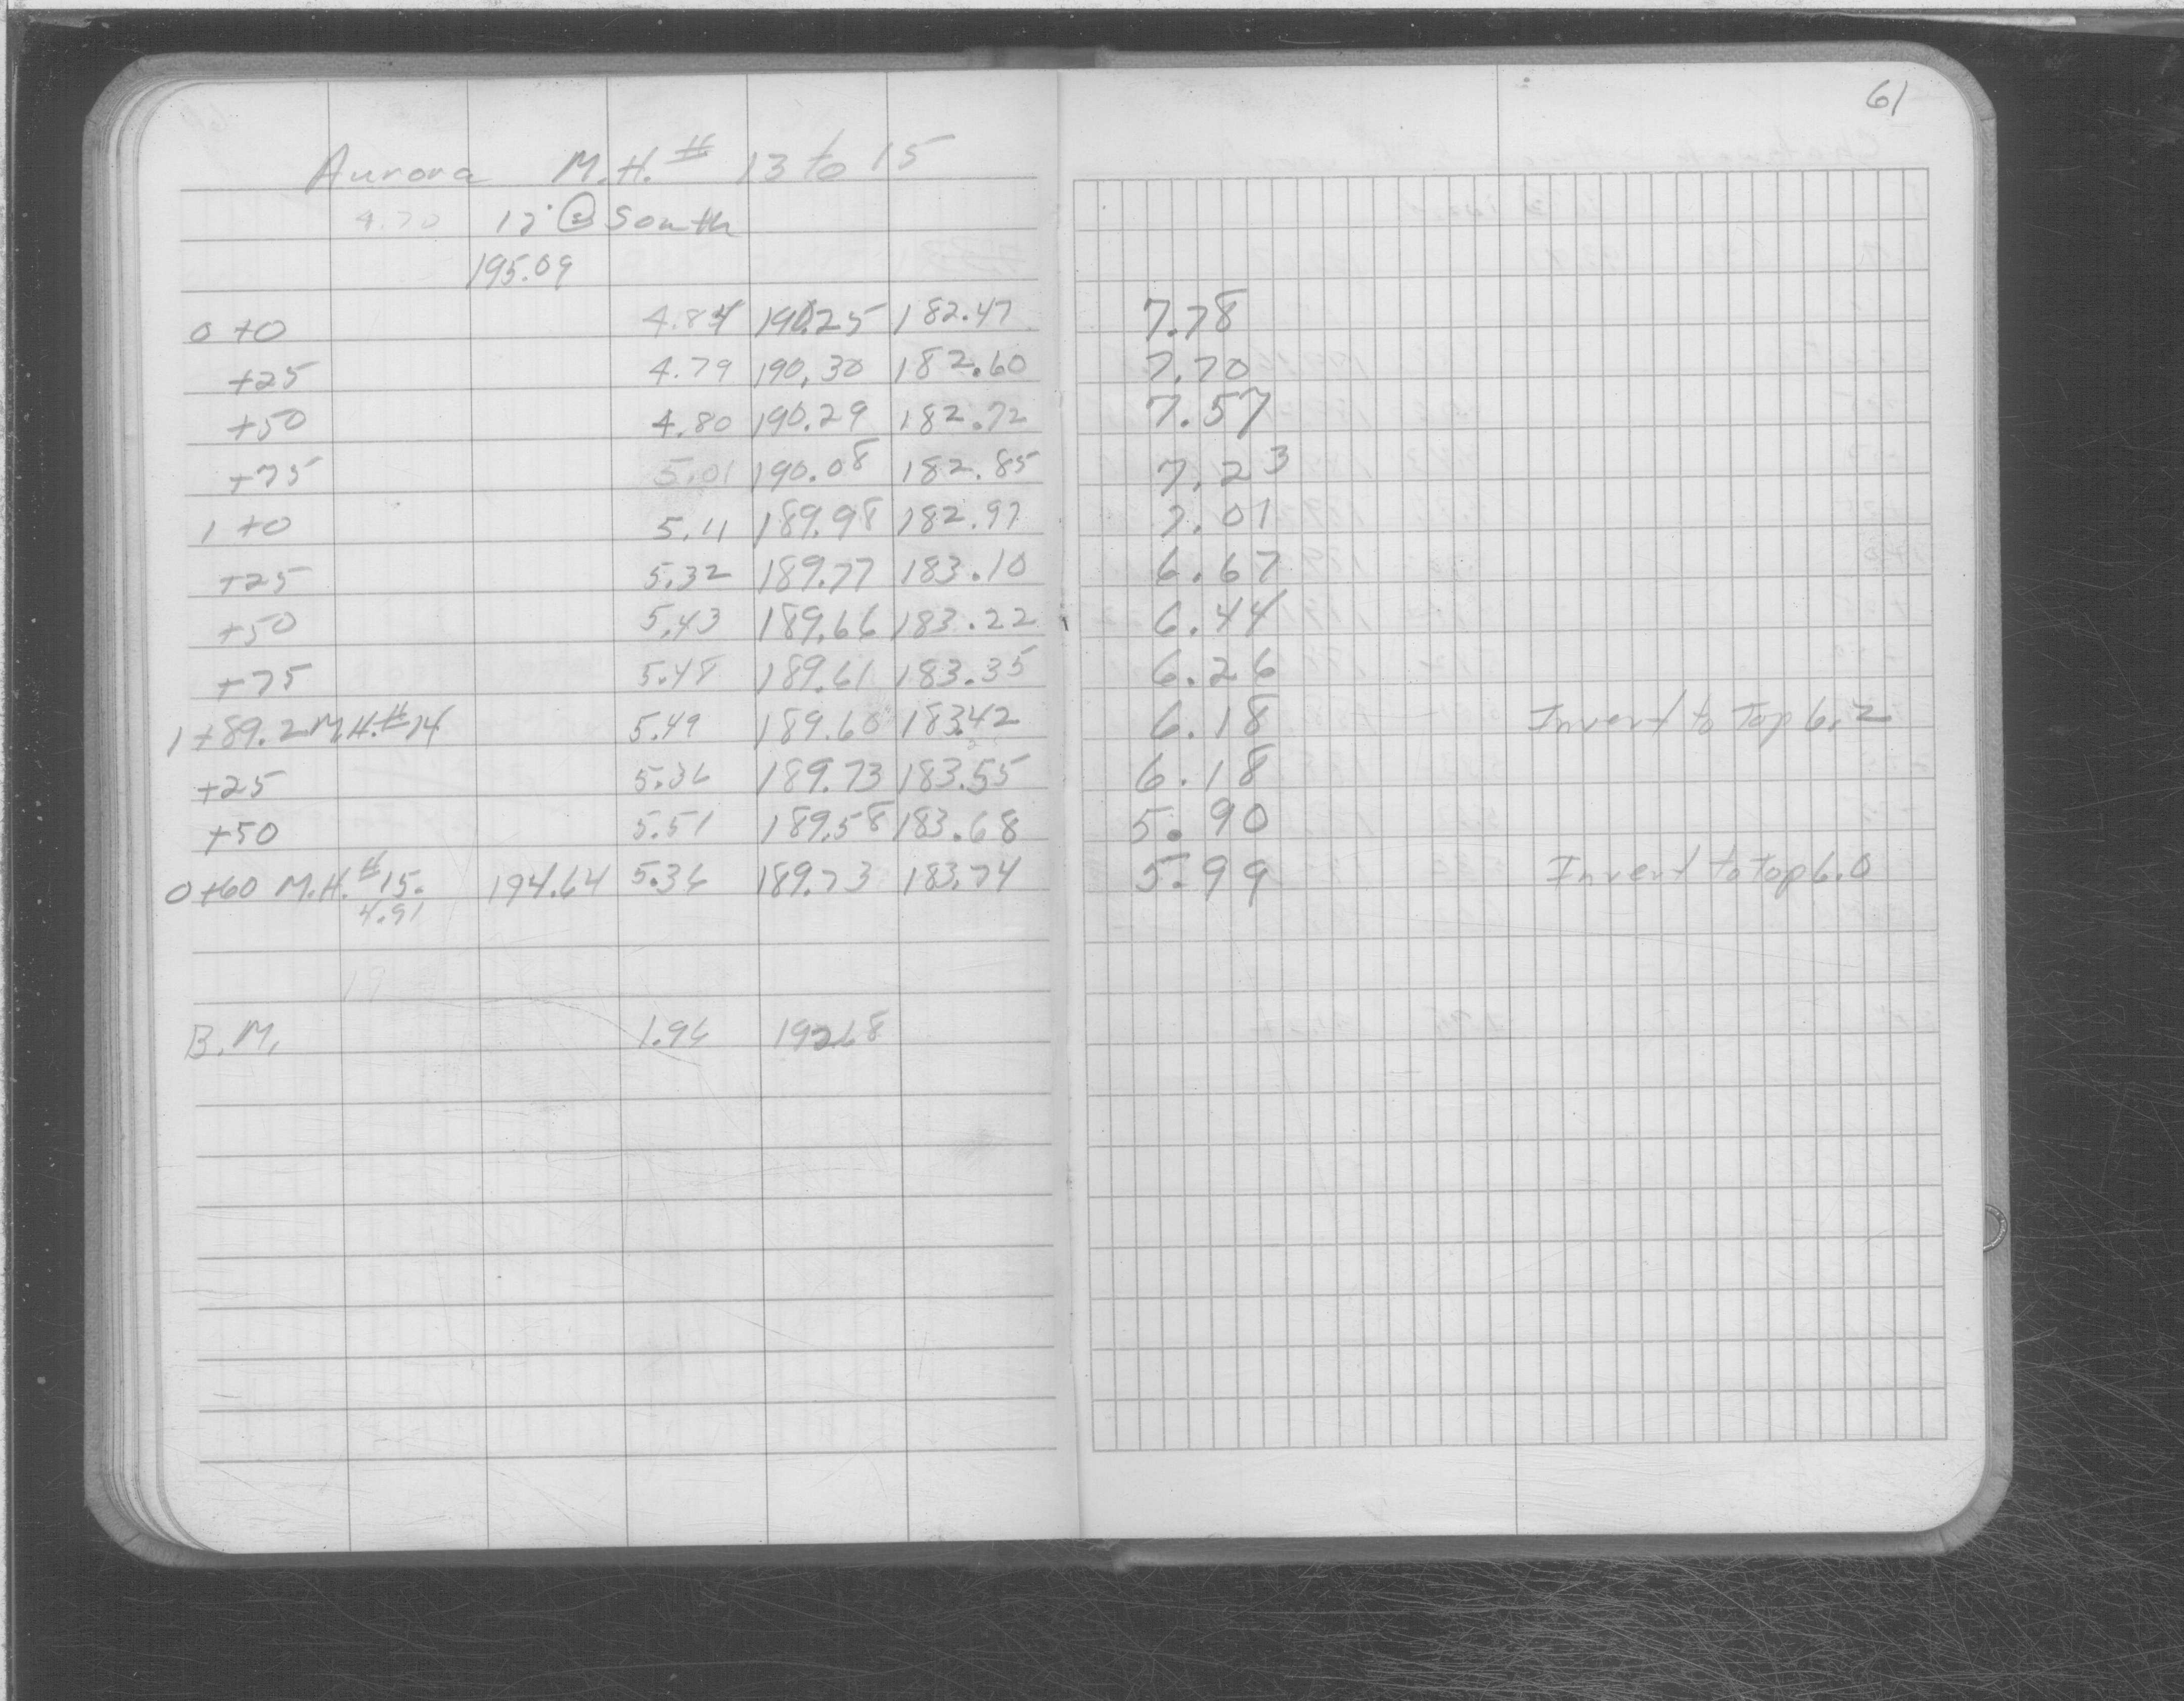 61
Aurora M.H. # 13 to 15
4.70 12" @ South
195.09
0+0 4.84 190.25 182.47 7.78
+25 4.79 190.30 182.60 7.70
+50 4.80 190.29 182.72 7.57
+75 5.01 190.08 182.85 7.23
1+0 5.11 189.98 182.97 7.01
+25 5.32 189.77 183.10 6.67
+50 5.43 189.66 183.22 6.44
+75 5.48 189.61 183.35 6.26
1+89.2 M.H.#14 5.49 189.60 183.42 6.18 Invert to Top 6.2
+25 5.36 189.73 183.55 6.18
+50 5.51 189.58 183.68 5.90
0+60 M.H. #15. 194.64 5.36 189.73 183.74 5.99 Invert to top 6.0
4.91
B.M. 1.96 192.68